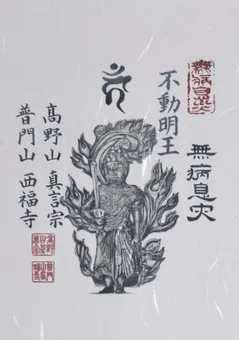 無病息災
不動明王
無病息災
高野山 真言宗
普門山 西福寺